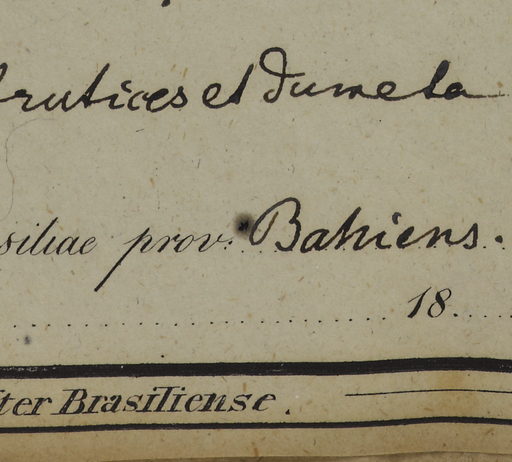 frutices et dumeta
siliae prov. Bahiens.
18
Iter Brasiliense.